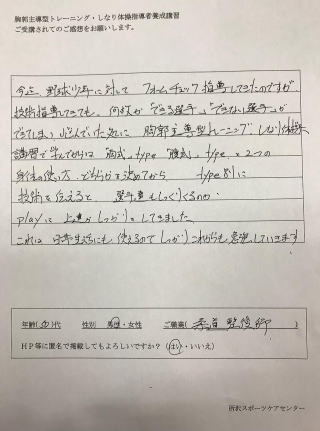 胸郭主導型トレーニング・しなり体操指導者養成講習
ご受講されてのご感想をお願いします。
今迄、野球少年に対して フォームチェック指導してきたのですが、
技術指導してきても、何故か「できる選手」「できない選手」が
できてしまい悩んでいた処に 胸郭主導型トレーニング、しなり体操
講習で学んでからは "胸式" type "腹式" type と2つの
身体の使い方、どちらかを決めてから type別に
技術を伝えると 選手達もしっくりくるのか
playに上達がしっかりとしてきました
これは 日常生活にも 使えるので しっかりこれからも意識していきます
年齢( 40 )代 性別 男性・女性 ご職業( 柔道整復師 )
HP等に匿名で掲載してもよろしいですか?(はい・いいえ)
所沢スポーツケアセンター